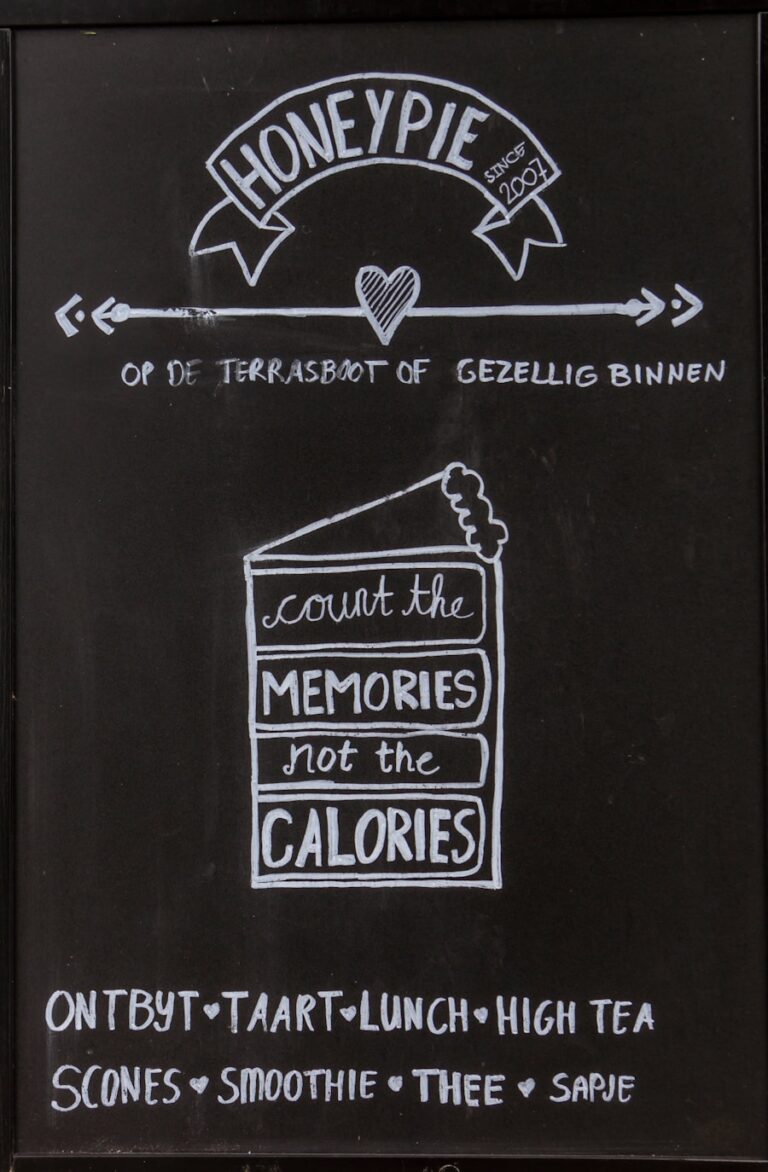 HONEYPIE
SINCE
2007
OP DE TERRASBOOT OF GEZELLIG BINNEN
count the
MEMORIES
not the
CALORIES
ONTBYT ♥ TAART ♥ LUNCH ♥ HIGH TEA
SCONES ♥ SMOOTHIE ♥ THEE ♥ SAPJE